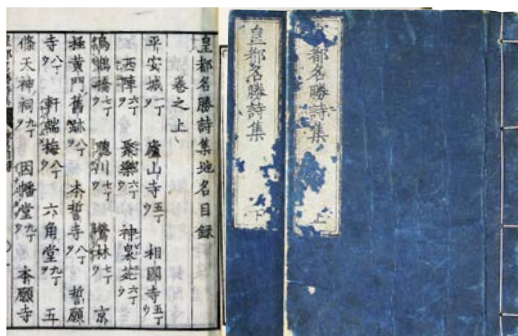 皇都名勝詩集地名目録
巻之上
平安城 一丁 廬山寺 五丁ウ 相國寺 五丁ウ
西陣 六丁ウ 聚樂 六丁ウ 神泉苑 六丁ウ
橋 七丁 川 七丁 林 七丁 京
極黄門舊跡 八丁ウ 本誓寺 八丁 誓願
寺 八丁ウ 軒端梅 八丁ウ 六角堂 九丁 五
條天神祠 九丁ウ 因幡堂 九丁ウ 本願寺
皇都名勝詩集 下
都名勝詩集 上